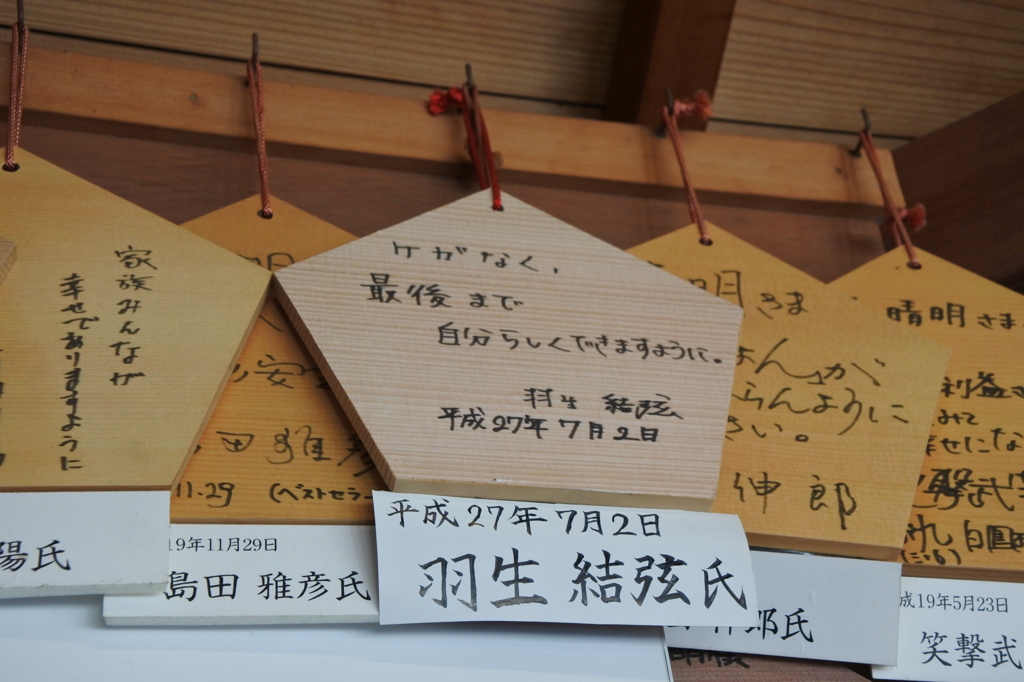 家族みんなが
幸せでありますように
陽氏
田雅彦
11.29
(ベストセラー
19年11月29日
島田 雅彦氏
ケガなく、
最後まで
自分らしくできますように。
羽生 結弦
平成27年7月2日
平成27年7月2日
羽生 結弦氏
明さま
らんように
さい。
伸郎
郎氏
晴明さま
利益
みて
幸せにな
撃武
成19年5月23日
笑撃武